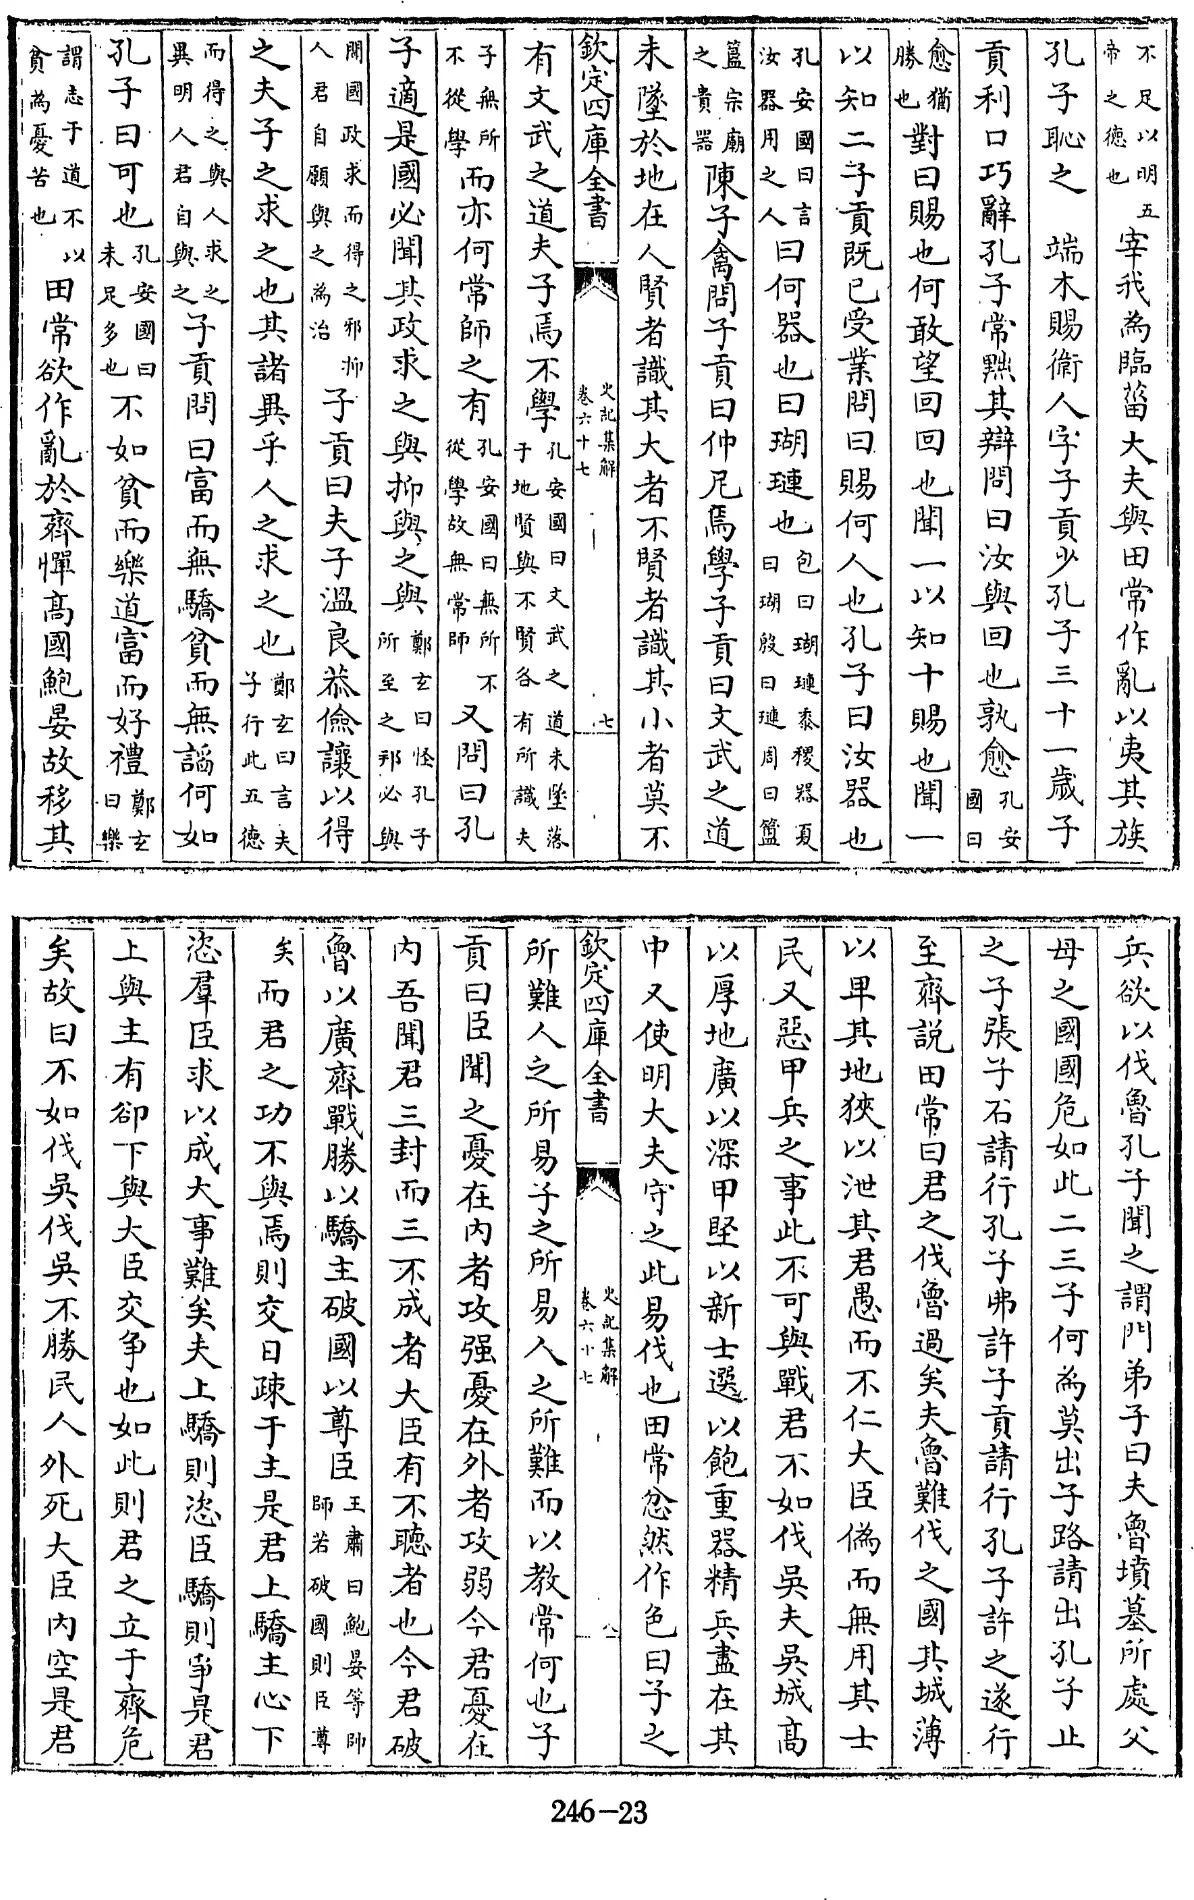 不足以明五帝之徳也宰我為臨菑大夫與田常作亂以夷其族
孔子恥之　端木賜衛人字子貢少孔子三十一歲子
貢利口巧辭孔子常黜其辯問曰汝與回也孰愈孔安國曰
愈猶勝也對曰賜也何敢望回回也聞一以知十賜也聞一
以知二子貢既已受業問曰賜何人也孔子曰汝器也
孔安國曰言汝器用之人曰何器也曰瑚璉也包曰瑚璉黍稷器夏曰瑚殷曰璉周曰簠
簋宗廟之貴器陳子禽問子貢曰仲尼焉學子貢曰文武之道
未墜於地在人賢者識其大者不賢者識其小者莫不
欽定四庫全書　史記集解卷六十七　七
有文武之道夫子焉不學孔安國曰文武之道未墜落于地賢與不賢各有所識夫
子無所不從學而亦何常師之有孔安國曰無所不從學故無常師又問曰孔
子適是國必聞其政求之與抑與之與鄭玄曰怪孔子所至之邦必與
聞國政求而得之邪抑人君自願與之為治子貢曰夫子温良恭儉讓以得
之夫子之求之也其諸異乎人之求之也鄭玄曰言夫子行此五徳
而得之與人求之異明人君自與之子貢問曰富而無驕貧而無諂何如
孔子曰可也孔安國曰未足多也不如貧而樂道富而好禮鄭玄曰樂
謂志于道不以貧為憂苦也田常欲作亂於齊憚髙國鮑晏故移其
兵欲以伐魯孔子聞之謂門弟子曰夫魯墳墓所處父
母之國國危如此二三子何為莫出子路請出孔子止
之子張子石請行孔子弗許子貢請行孔子許之遂行
至齊説田常曰君之伐魯過矣夫魯難伐之國其城薄
以卑其地狹以泄其君愚而不仁大臣偽而無用其士
民又惡甲兵之事此不可與戰君不如伐吳夫吳城髙
以厚地廣以深甲堅以新士選以飽重器精兵盡在其
中又使明大夫守之此易伐也田常忿然作色曰子之
欽定四庫全書　史記集解卷六十七　八
所難人之所易子之所易人之所難而以教常何也子
貢曰臣聞之憂在内者攻强憂在外者攻弱今君憂在
内吾聞君三封而三不成者大臣有不聽者也今君破
魯以廣齊戰勝以驕主破國以尊臣王肅曰鮑晏等帥師若破國則臣尊
矣而君之功不與焉則交日疎于主是君上驕主心下
恣羣臣求以成大事難矣夫上驕則恣臣驕則爭是君
上與主有卻下與大臣交争也如此則君之立于齊危
矣故曰不如伐吳伐吳不勝民人外死大臣内空是君
246-23